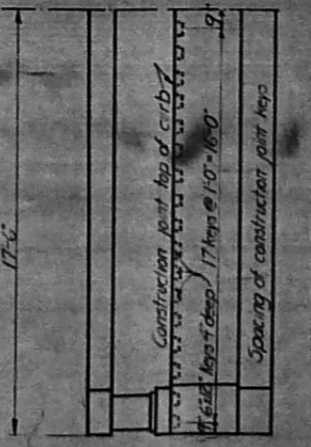 17'-6"
Construction joint top of curb
keys 4" deep
17 keys @ 1'-0" = 16'-0"
9"
Spacing of construction joint keys